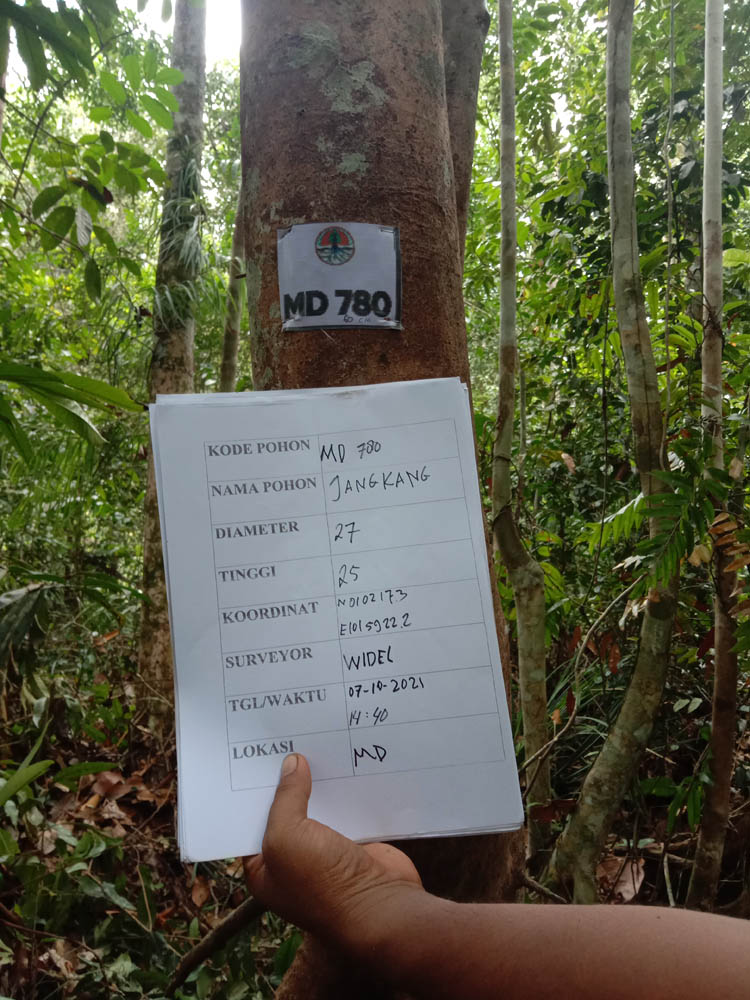 MD 780
60 cm
KODE POHON MD 780
NAMA POHON JANGKANG
DIAMETER 27
TINGGI 25
KOORDINAT N0102173
E10159222
SURVEYOR WIDEL
TGL/WAKTU 07-10-2021
14:40
LOKASI MD